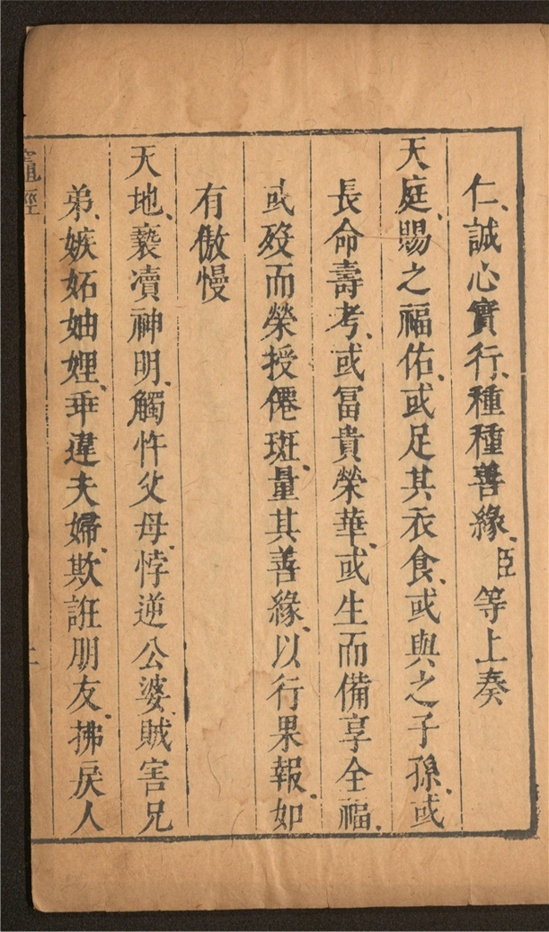 仁、誠心實行、種種善緣、臣等上奏
天庭、賜之福佑、或足其衣食、或與之子孫、或
長命壽考、或冨貴榮華、或生而備享全福、
或歿而榮授僊班、量其善緣、以行果報、如
有傲慢
天地、褻瀆神明、觸忤父母、悖逆公婆、賊害兄
弟、嫉妬妯娌、乖違夫婦、欺誑朋友、拂戾人
竈經